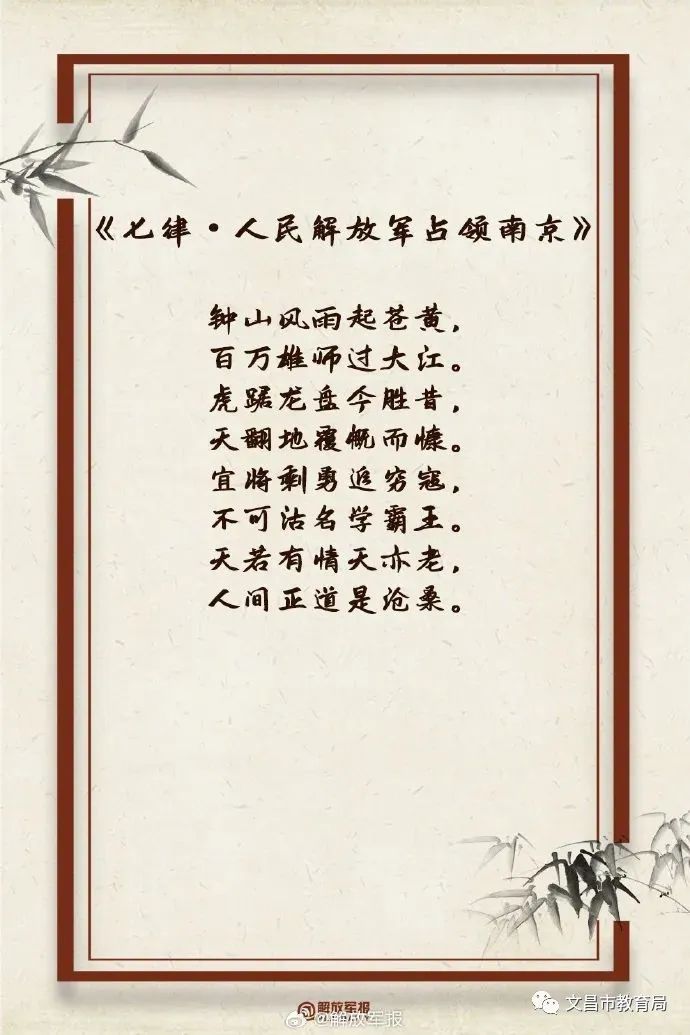 《七律·人民解放军占领南京》
钟山风雨起苍黄，
百万雄师过大江。
虎踞龙盘今胜昔，
天翻地覆慨而慷。
宜将剩勇追穷寇，
不可沽名学霸王。
天若有情天亦老，
人间正道是沧桑。
解放军报
@解放军报
文昌市教育局